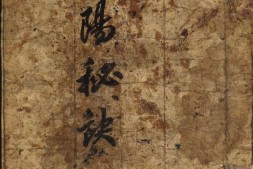 陽秘訣